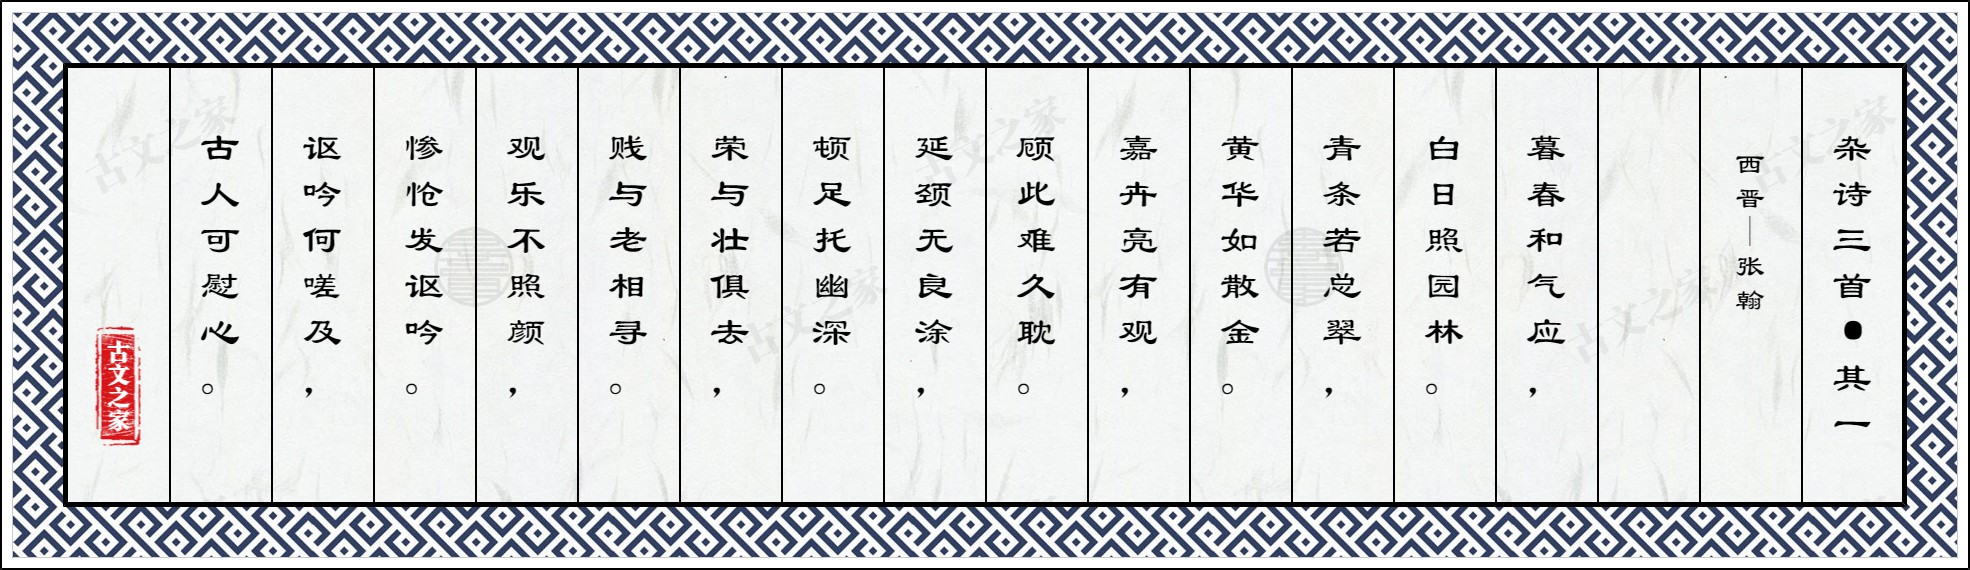 杂诗三首●其一
西晋—张翰
暮春和气应，
白日照园林。
青条若总翠，
黄华如散金。
嘉卉亮有观，
顾此难久耽。
延颈无良涂，
顿足托幽深。
荣与壮俱去，
贱与老相寻。
观乐不照颜，
惨怆发讴吟。
讴吟何嗟及，
古人可慰心。
古文之家